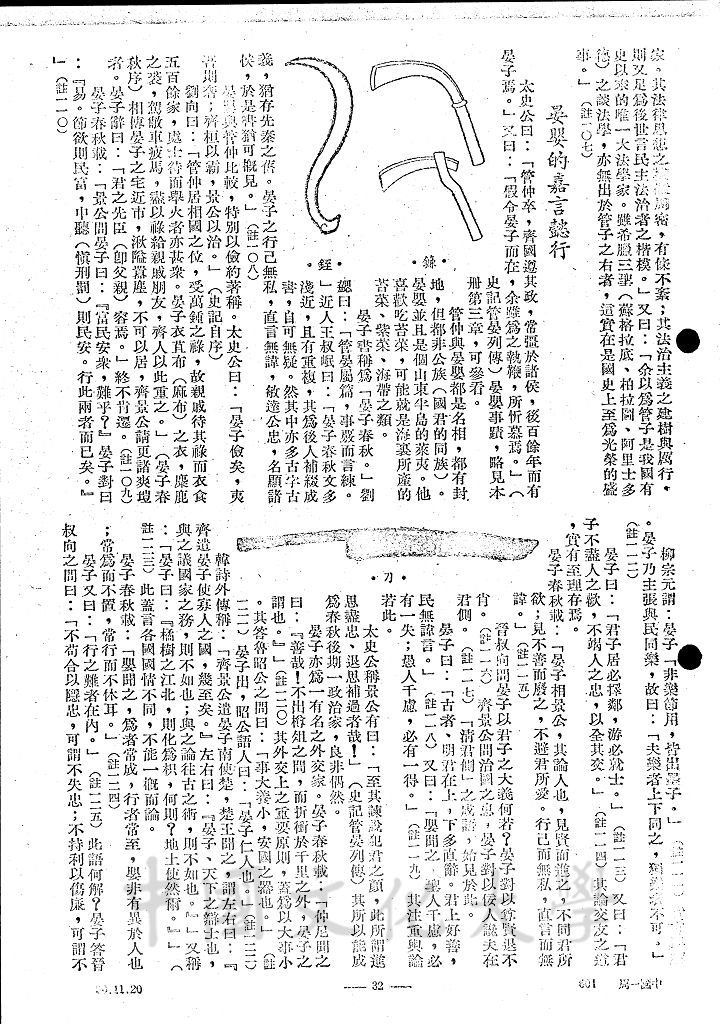 家。其法律思想之
密,有條不紊;其法治主義之建樹與厲行,
則又足為後世言民主法治者之楷模。」又曰:「余以為管子是我國有
史以來的唯一大法學家。雖希臘三聖(蘇格拉底、柏拉圖、阿里士多
德)之談法學,亦無出於管子之右者,這實在是國史上至為光榮的盛
事。」(註一〇七)
晏嬰的嘉言懿行
太史公曰:「管仲卒,齊國遵其政,常彊於諸侯,後百餘年而有
晏子焉。」又曰:「假令晏子而在,余雖為之執鞭,所忻慕焉。」(
史記管晏列傳)晏嬰事蹟,略見本
冊第三章,可參看。
管仲與晏嬰都是名相,都有封
地,但都非公族(國君的同族)。
晏嬰並且是個山東半島的萊夷。他
喜歡吃苔菜,可能就是海裏所產的
苔菜、紫菜、海帶之類。
晏子書稱為「晏子春秋。」劉
勰曰:「管晏屬篇,事覈而言練。
」近人王叔岷曰:「晏子春秋文多
淺近,且有重複,其為後人補綴成
書,自可無疑。然其中亦多古字古
義,猶存先秦之舊。晏子之行己無私,直言無諱,敏達公忠,名顯諸
侯,於是書猶可概見。」(註一〇八)
晏嬰與管仲比較,特別以儉約著稱。太史公曰:「晏子儉矣,夷
吾則奢;齊桓以霸,景公以治。」(史記自序)
劉向曰:「管仲居相國之位,受萬鍾之祿,故親戚待其祿而衣食
五百餘家,處士待而舉火者亦甚衆。晏子衣苴布(麻布)之衣,麋鹿
之裘,駕敝車疲馬,盡以祿給親戚朋友,齊人以此重之。」(晏子春
秋序)相傳晏子之宅近市,湫隘囂塵,不可以居,齊景公請更諸爽塏
者。晏子辭曰:「君之先臣(卽父親)容焉。」終不肯遷。(註一〇九)
晏子春秋載:「景公問晏子曰:『富民安衆,難乎?』晏子對曰
:『易。節欲則民富,中聽(愼刑罰)則民安。行此兩者而已矣。』
」(註一一〇)
鎌
銍
柳宗元謂:晏子「非樂節用,皆出墨子。」
。晏子乃主張與民同樂,故曰:「夫樂者上下同之,
不可。」
(註一一二)
晏子曰:「君子居必擇鄰,游必就士。」(註一一三)又曰:「君
子不盡人之歡,不竭人之忠,以全其交。」(註一一四)其論交友之道
,實有至理存焉。
晏子春秋載:「晏子相景公,其論人也,見賢而進之,不同君所
欲;見不善而廢之,不避君所愛。行己而無私,直言而無
諱。」(註一一五)
晉叔向問晏子以君子之大義何若?晏子對以尊賢退不
肖。(註一一六)齊景公問治國之患,晏子對以佞人讒夫在
君側。(註一一七)「清君側」之成語,始見於此。
晏子曰:「古者,明君在上,下多直辭。君上好善,
民無諱言。」(註一一八)又曰:「嬰聞之,聖人千慮,必
有一失;愚人千慮,必有一得。」(註一一九)其注重輿論
若此。
太史公稱景公有曰:「至其諫說犯君之顏,此所謂進
思盡忠、退思補過者哉!」(史記管晏列傳)其所以能成
為春秋後期一政治家,良非偶然。
晏子亦為一有名之外交家。晏子春秋載:「仲尼聞之
曰:『善哉!不出樽俎之間,而折衝於千里之外,晏子之
謂也。』」(註一二〇)其外交上之重要原則,蓋為以大事小
。其答魯昭公之問曰:「事大養小,安國之器也。」(註
一二一)晏子出,昭公語人曰:「晏子仁人也。」(註一二二)
韓詩外傳稱:「齊景公遣晏子南使楚,楚王聞之,謂左右曰:『
齊遣晏子使寡人之國,幾至矣。』左右曰:『晏子、天下之辯士也,
與之議國家之務,則不如也;與之論往古之術,則不如也。』」又稱
:「晏子曰:『橘樹之江北,則化為枳,何則?地土使然爾。』」(
註一二三)此蓋言各國國情不同,不能一概而論。
晏子春秋載:「嬰聞之,為者常成,行者常至,嬰非有異於人也
;常為而不置,常行而不休耳。」(註一二四)
晏子又曰:「行之難者在內。」(註一二五)此語何解?晏子答晉
叔向之問曰:「不苟合以隱忠,可謂不失忠;不持利以傷廉,可謂不
刀
11.20
— 32 —
601
中國一周